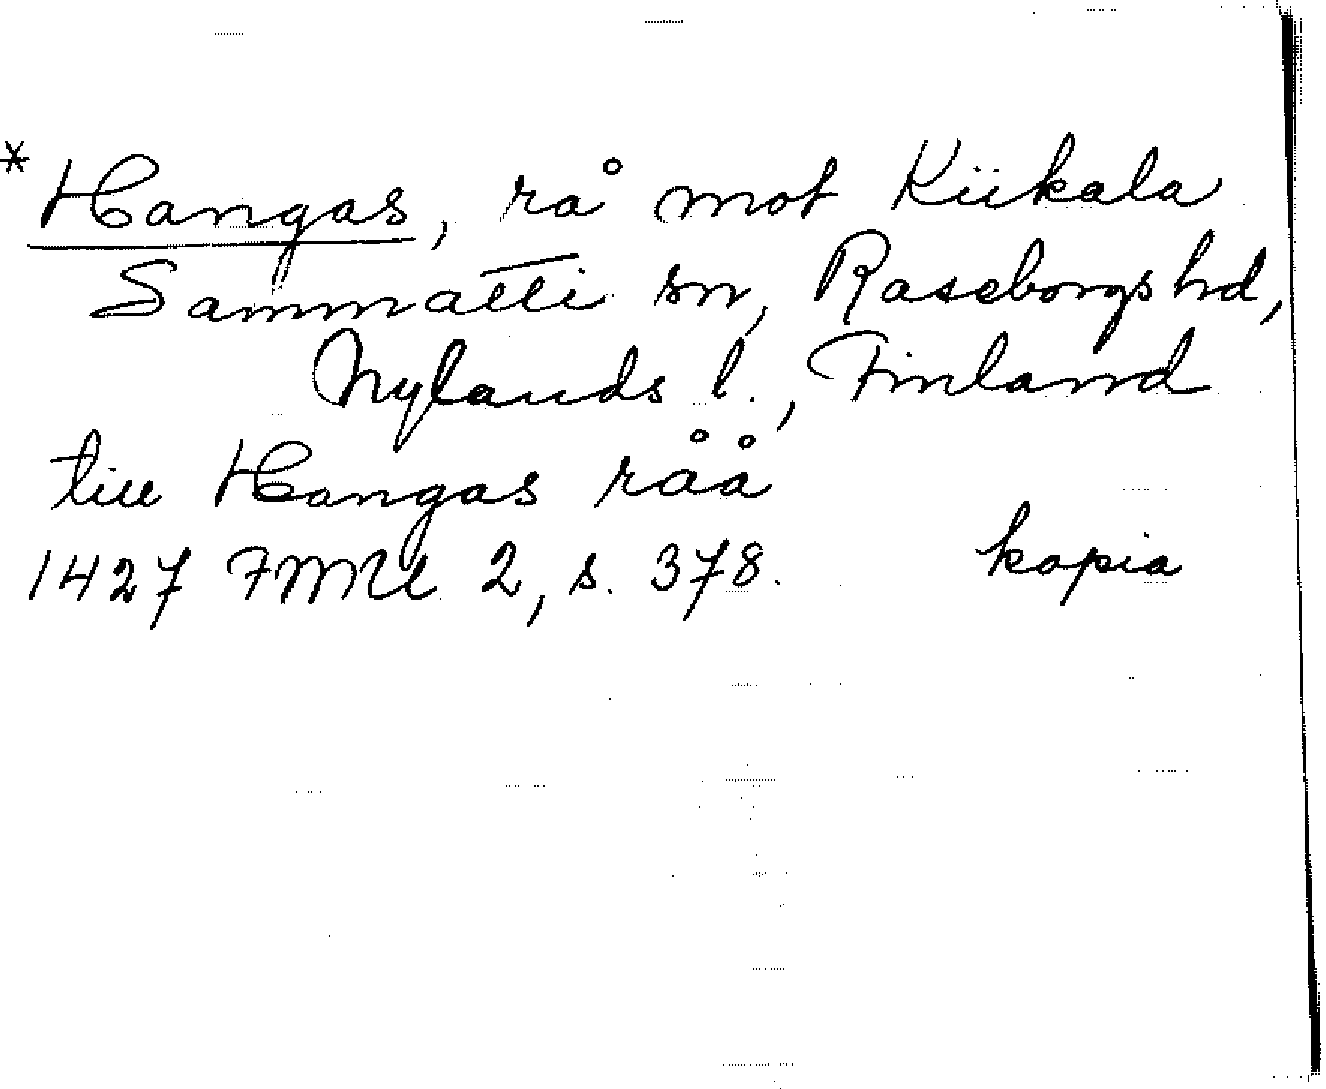 * Hangas, rå mot Kiikala
Sammatti sn, Raseborgs hd,
Nylands l., Finland
till Hangas råå
1427 FMU 2, s. 378. kopia